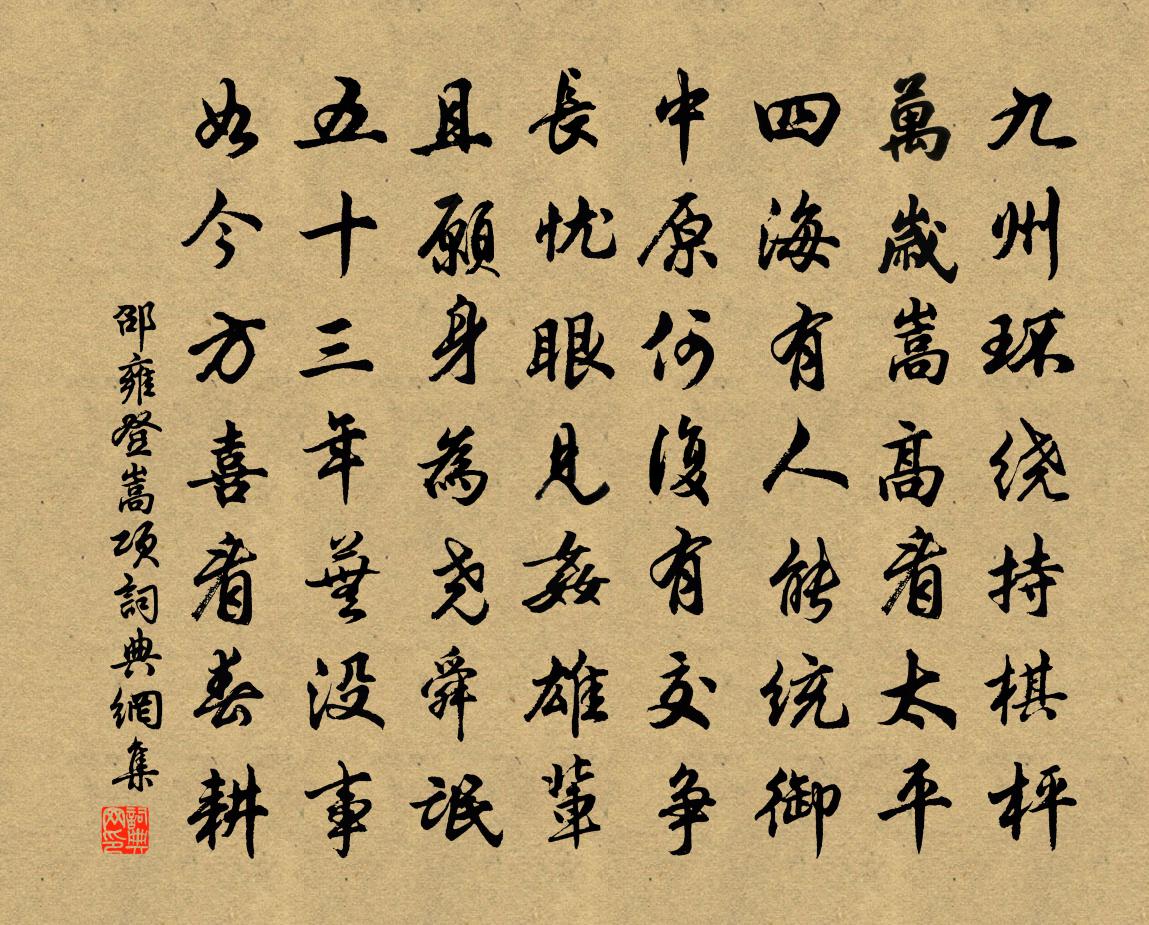 九州环绕持棋枰
萬歲嵩高看太平
四海有人能統御
中原何復有交爭
長忧眼見姦雄輩
且願身為尧舜氓
五十三年蕪没事
如今方喜看春耕
邵雍登嵩項詞典網集
詞典網印